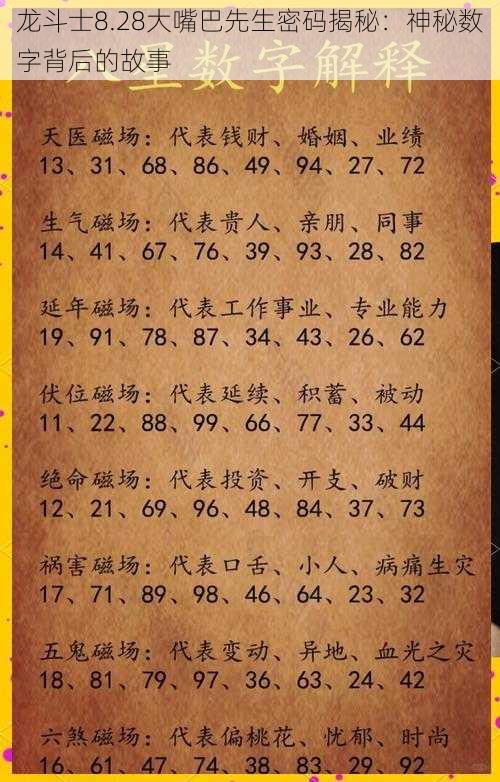 龙斗士8.28大嘴巴先生密码揭秘：神秘数
字背后的故事
八星数字解释
天医磁场：代表钱财、婚姻、业绩
13、31、68、86、49、94、27、72
生气磁场：代表贵人、亲朋、同事
14、41、67、76、39、93、28、82
延年磁场：代表工作事业、专业能力
19、91、78、87、34、43、26、62
伏位磁场：代表延续、积蓄、被动
11、22、88、99、66、77、33、44
绝命磁场：代表投资、开支、破财
12、21、69、96、48、84、37、73
祸害磁场：代表口舌、小人、病痛生灾
17、71、89、98、46、64、23、32
五鬼磁场：代表变动、异地、血光之灾
18、81、79、97、36、63、24、42
六煞磁场：代表偏桃花、忧郁、时尚
16、61、47、74、38、83、29、92